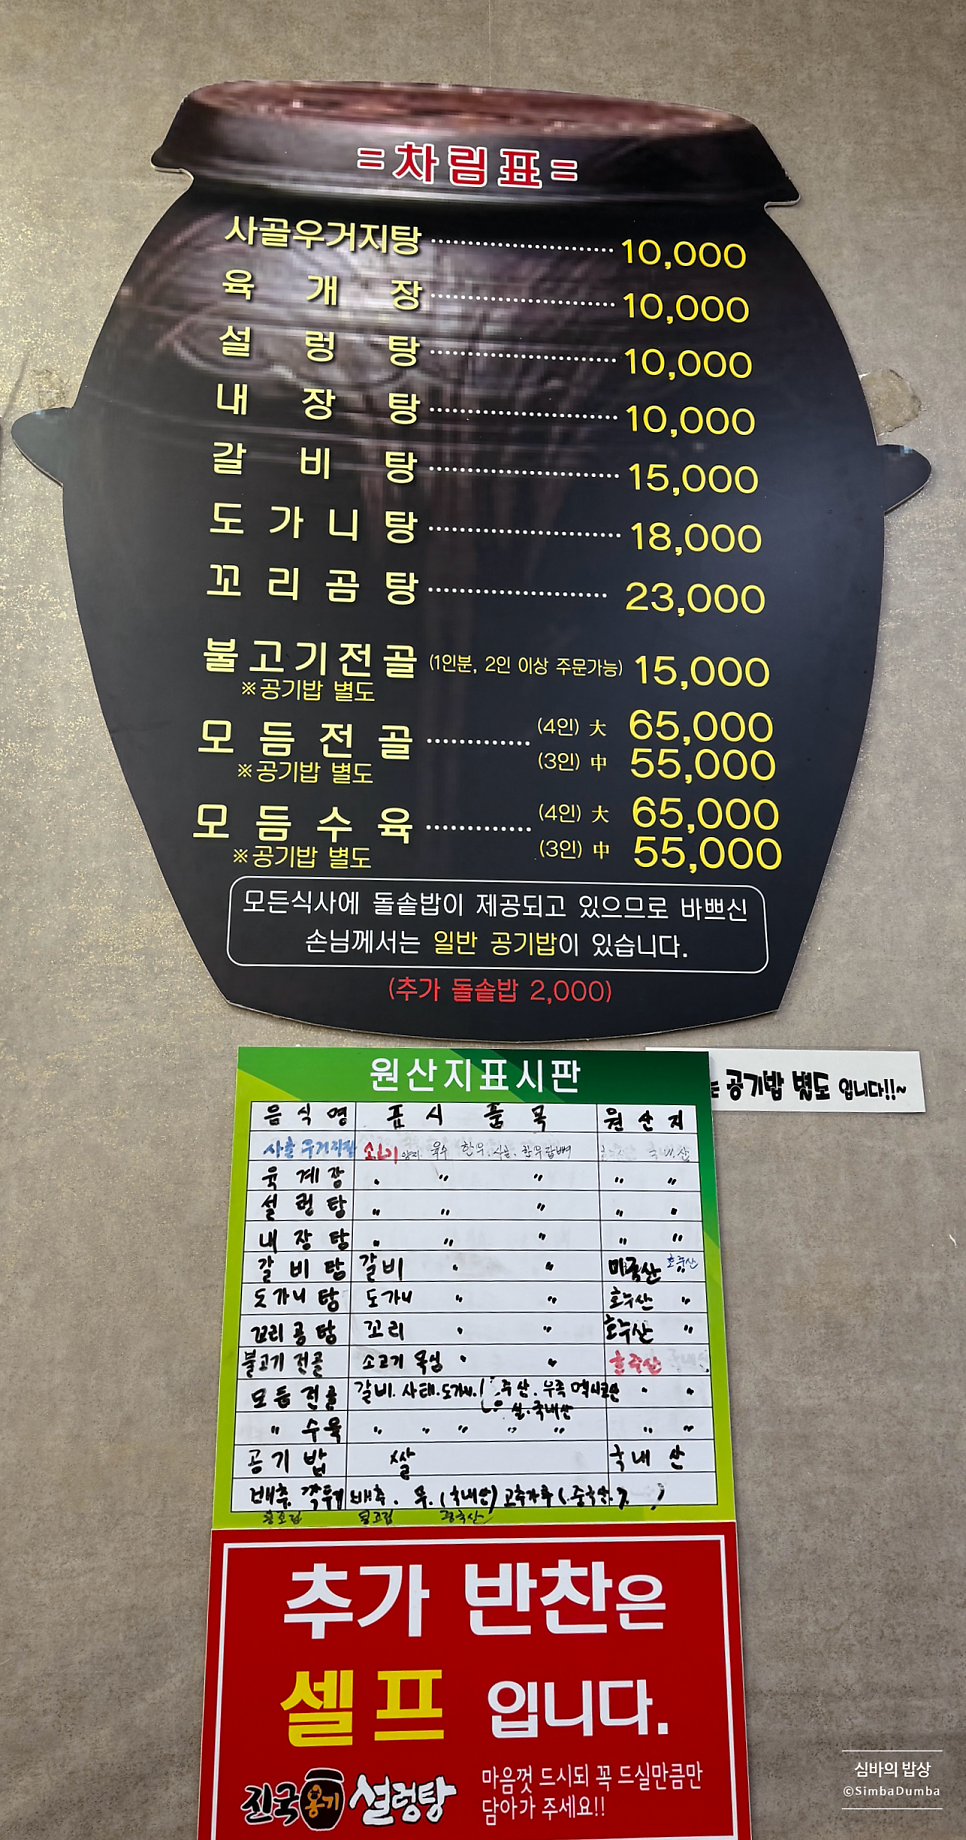 =차림표=
사골우거지탕 10,000
육개장 10,000
설렁탕 10,000
내장탕 10,000
갈비탕 15,000
도가니탕 18,000
꼬리곰탕 23,000
불고기전골 (1인분, 2인 이상 주문가능) 15,000
※공기밥 별도
모듬전골 (4인) 大 65,000
(3인) 中 55,000
※공기밥 별도
모듬수육 (4인) 大 65,000
(3인) 中 55,000
※공기밥 별도
모든식사에 돌솥밥이 제공되고 있으므로 바쁘신
손님께서는 일반 공기밥이 있습니다.
(추가 돌솥밥 2,000)
는 공기밥 별도 입니다!!~
원산지표시판
음식명 표시품목 원산지
사골우거지탕 소고기 양지 육수 한우 사골 국내산
육계장 〃 〃 〃 〃
설렁탕 〃 〃 〃 〃
내장탕 〃 〃 〃 〃
갈비탕 갈비 〃 〃 미국산 호주산
도가니탕 도가니 〃 〃 호주산 〃
꼬리곰탕 꼬리 〃 〃 호주산 〃
불고기전골 소고기 목심 〃 〃 호주산
모듬전골 갈비.사태.도가니 우족 멕시코산 〃 〃
국내산
〃 수육 〃 〃 〃 〃 〃 〃 〃
공기밥 쌀 국내산
배추 깍두기 배추. 무. (국내산) 고추가루 (중국산)
추가 반찬은
셀프 입니다.
진국 옹기 설렁탕
마음껏 드시되 꼭 드실만큼만
담아가 주세요!!
심바의 밥상
©SimbaDumba